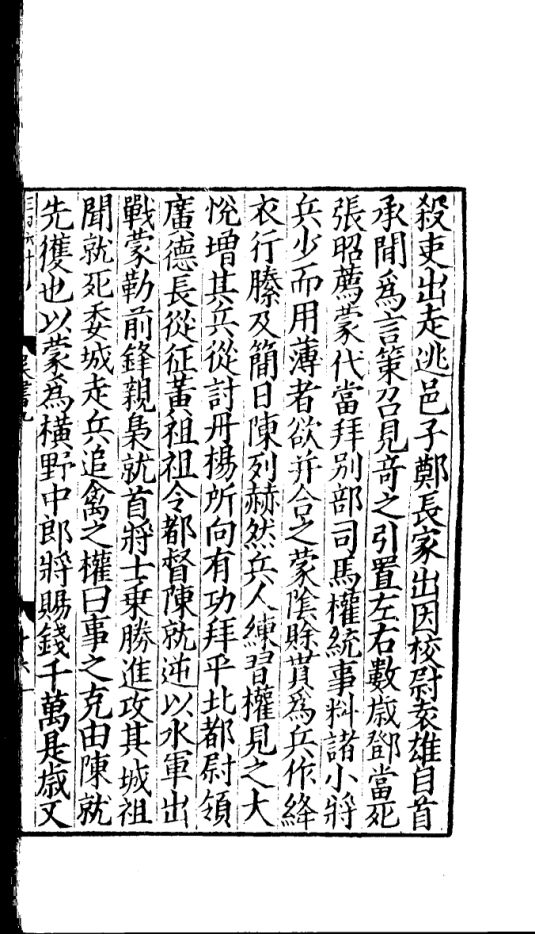 殺吏出走逃邑子鄭長家出因校尉袁雄自首
承間爲言策召見竒之引置左右數歳鄧當死
張昭薦蒙代當拜别部司馬權統事料諸小將
兵少而用薄者欲并合之蒙陰賖貰爲兵作絳
衣行縢及簡日陳列赫然兵人練習權見之大
恱增其兵從討丹楊所向有功拜平北都尉領
廣德長從征黃祖祖令都督陳就逆以水軍出
戰蒙勒前鋒親梟就首將士乗勝進攻其城祖
聞就死委城走兵追禽之權曰事之克由陳就
先獲也以蒙爲橫野中郎將賜錢千萬是歳又